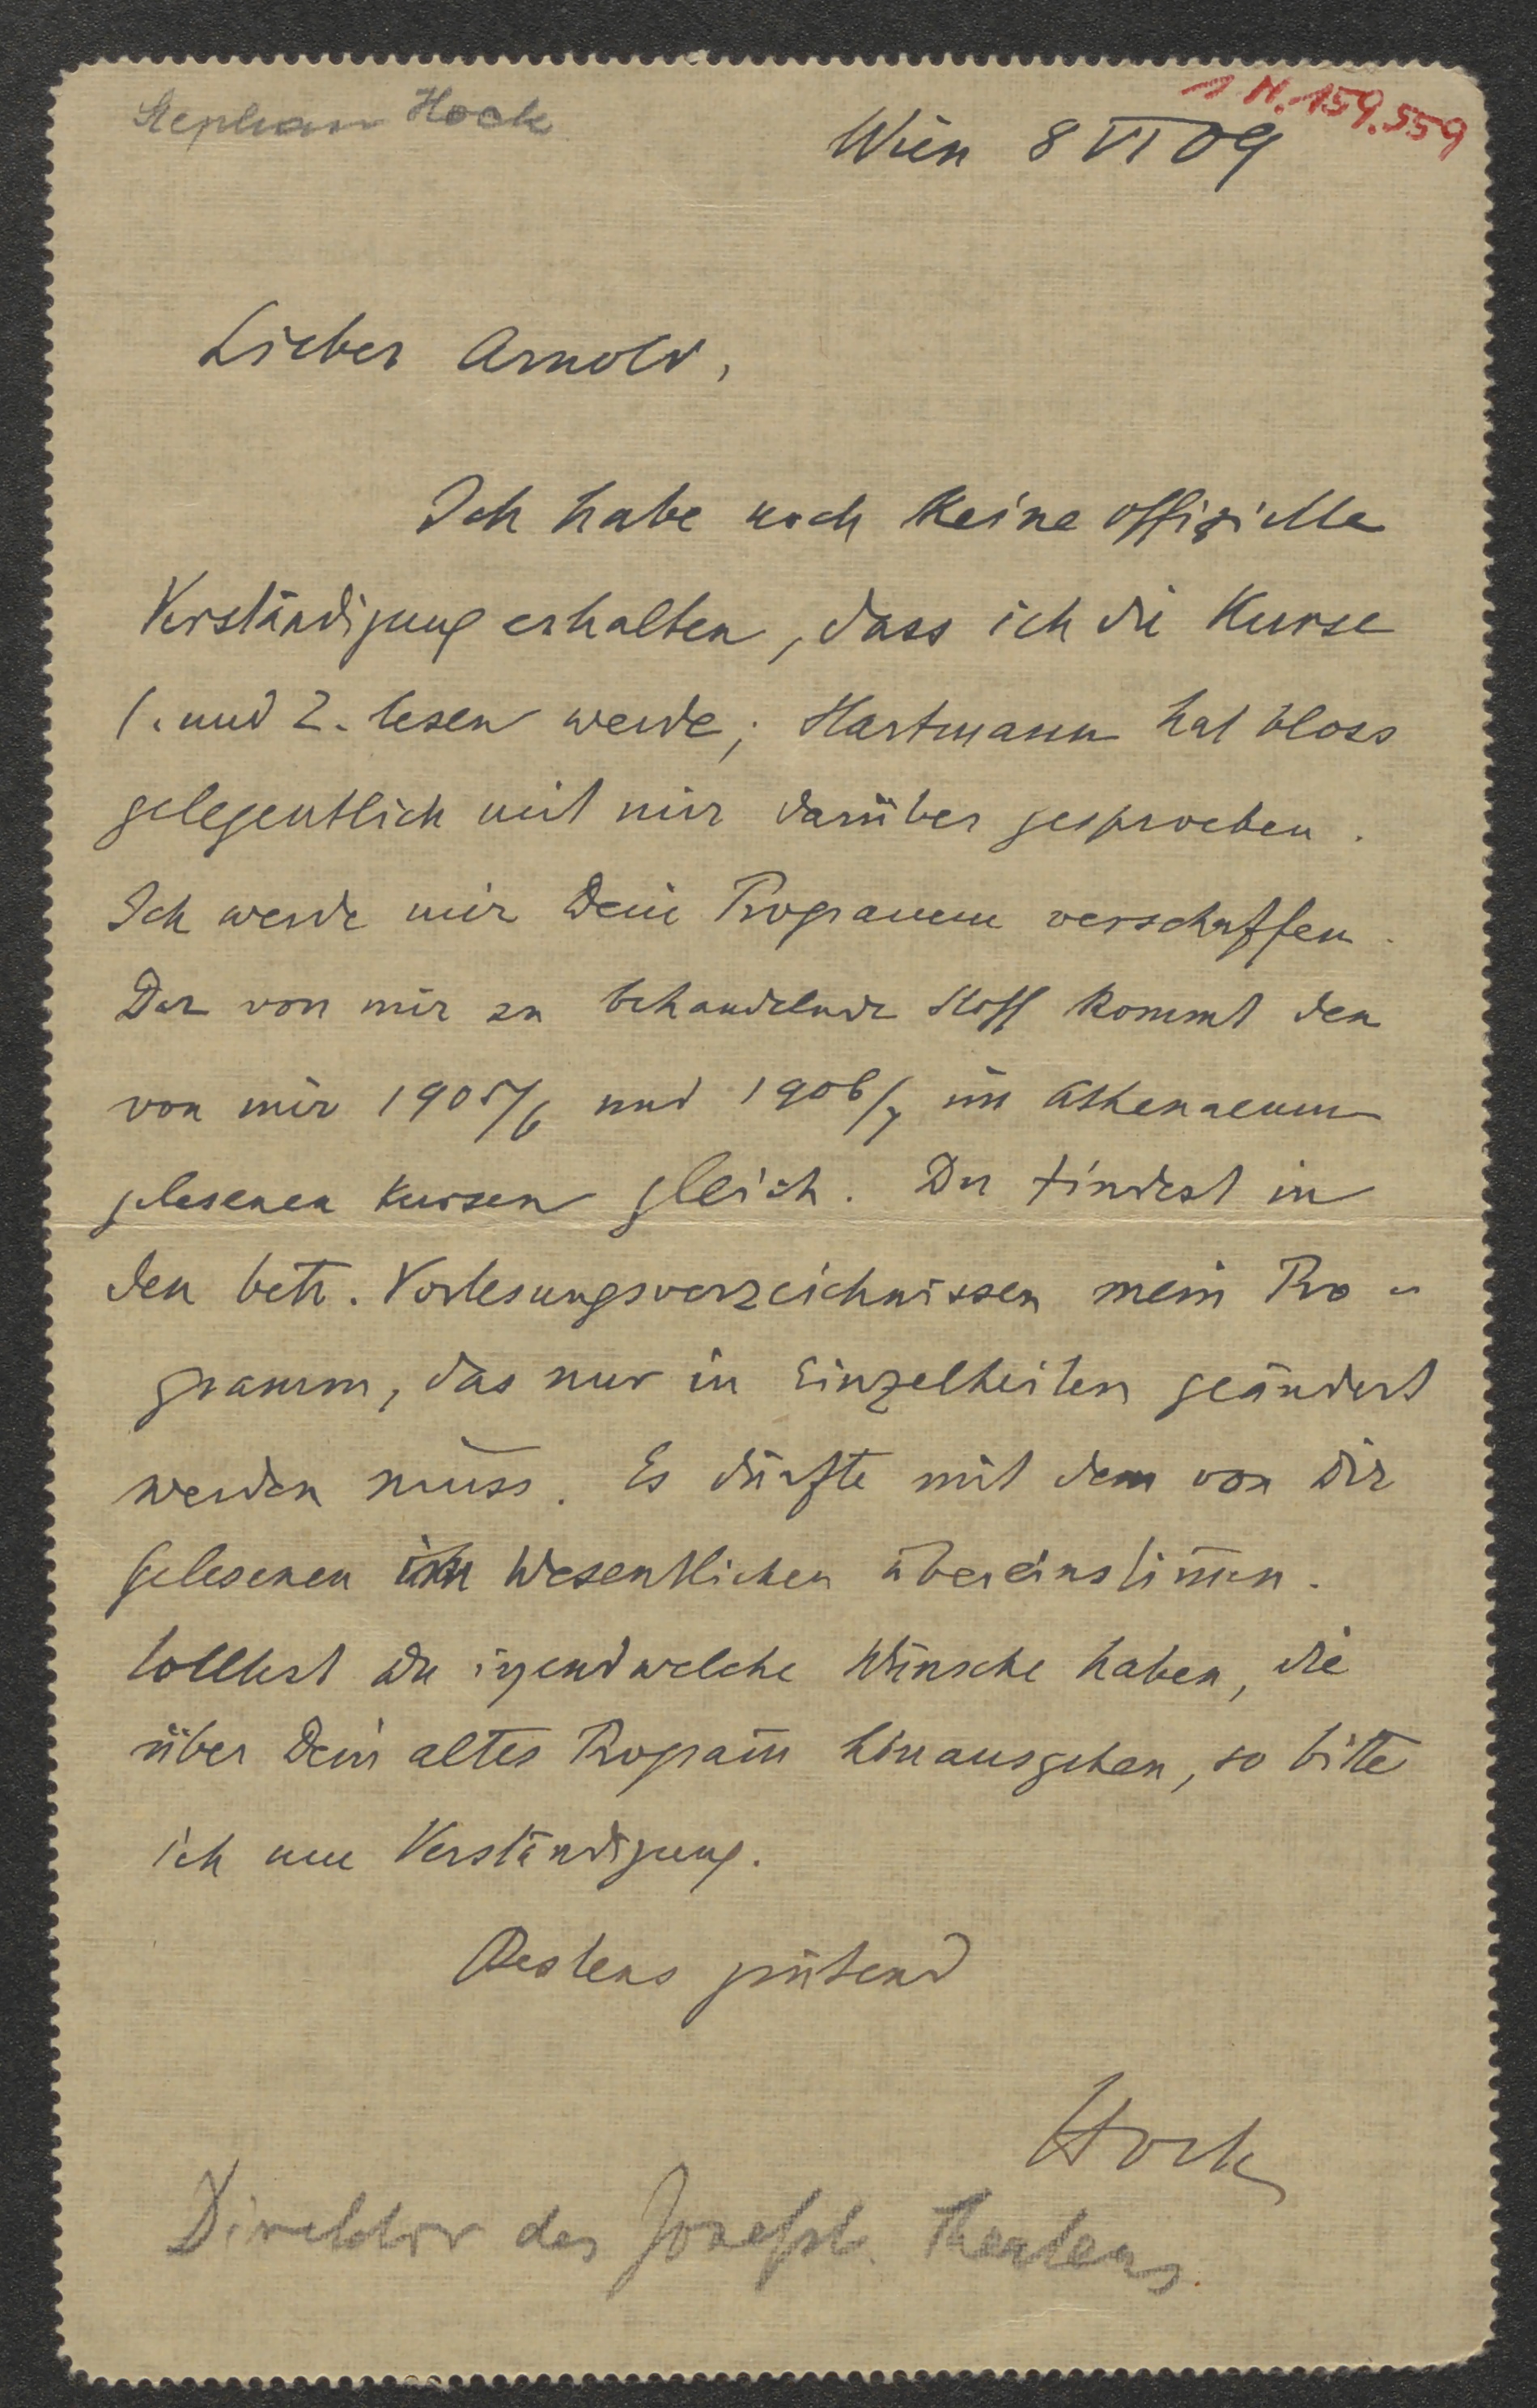 Stephan Hock
I.N. 159.559
Wien 8 VI 09
Lieber Arnold,
Ich habe noch keine offizielle
Verständigung erhalten, dass ich die Kurse
1. und 2. lesen werde; Hartmann hat bloss
gelegentlich mit mir darüber gesprochen.
Ich werde mir Dein Programm verschaffen.
Der von mir zu behandelnde Stoff kommt den
von mir 1905/6 und 1906/7 im Athenaeum
gelesenen Kursen gleich. Du findest in
den betr. Vorlesungsverzeichnissen mein Pro-
gramm, das nur in Einzelheiten geändert
werden muss. Es dürfte mit dem von Dir
gelesenen im Wesentlichen übereinstim̅en.
Solltest Du irgendwelche Wünsche haben, die
über Dein altes Program̅ hinausgehen, so bitte
ich um Verständigung.
Bestens grüßend
Hock
Direktor des Josefst. Theaters.